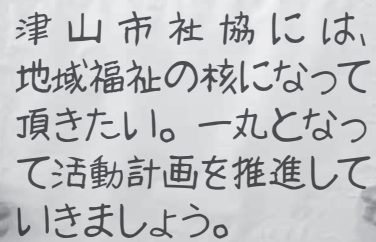 津山市社協には、
地域福祉の核になって
頂きたい。一丸となっ
て活動計画を推進して
いきましょう。